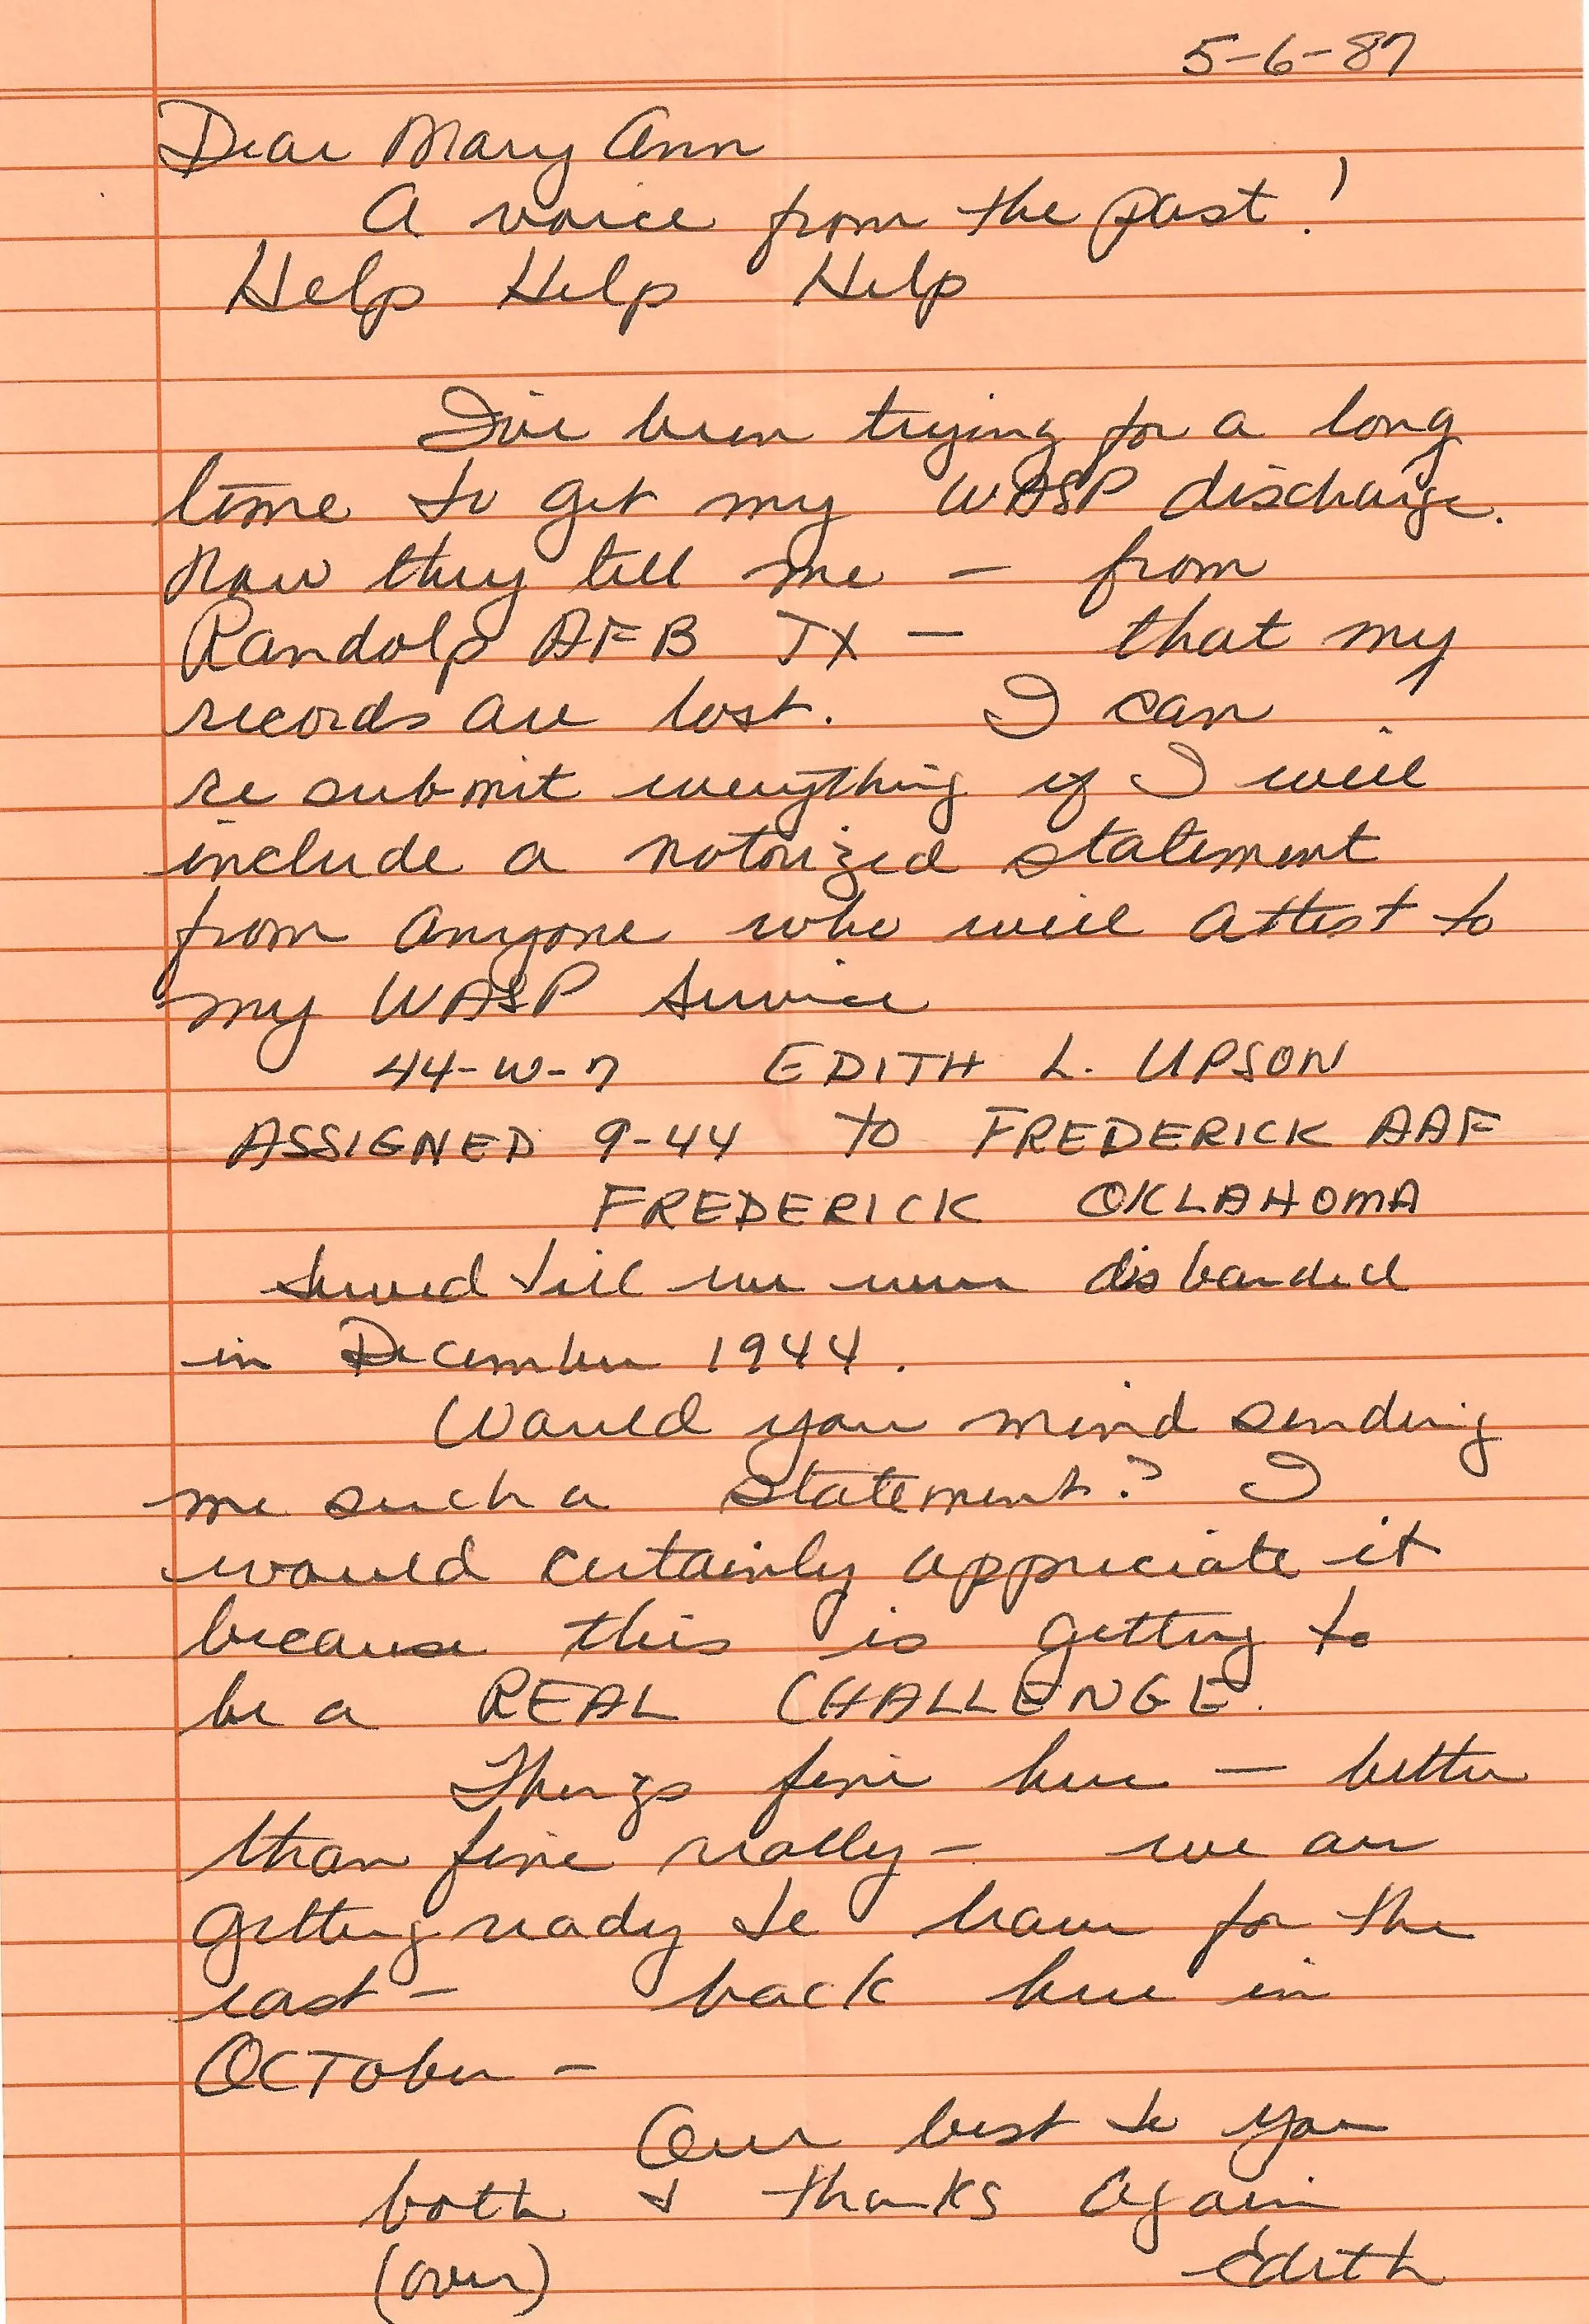 5-6-87
Dear Mary Ann
A voice from the past!
Help Help Help
I've been trying for a long
time to get my WASP discharge.
Now they tell me — from
Randolp AFB TX — that my
records are lost. I can
re submit everything if I will
include a notorized statement
from anyone who will attest to
my WASP service
44-W-7 EDITH L. UPSON
ASSIGNED 9-44 TO FREDERICK AAF
FREDERICK OKLAHOMA
served till we were disbanded
in December 1944.
Would you mind sending
me such a statement? I
would certainly appreciate it
because this is getting to
be a REAL CHALLENGE.
Things fine here — better
than fine really — we are
getting ready to leave for the
east — back here in
OCTober —
Our best to you
both & thanks again
(over) Edith